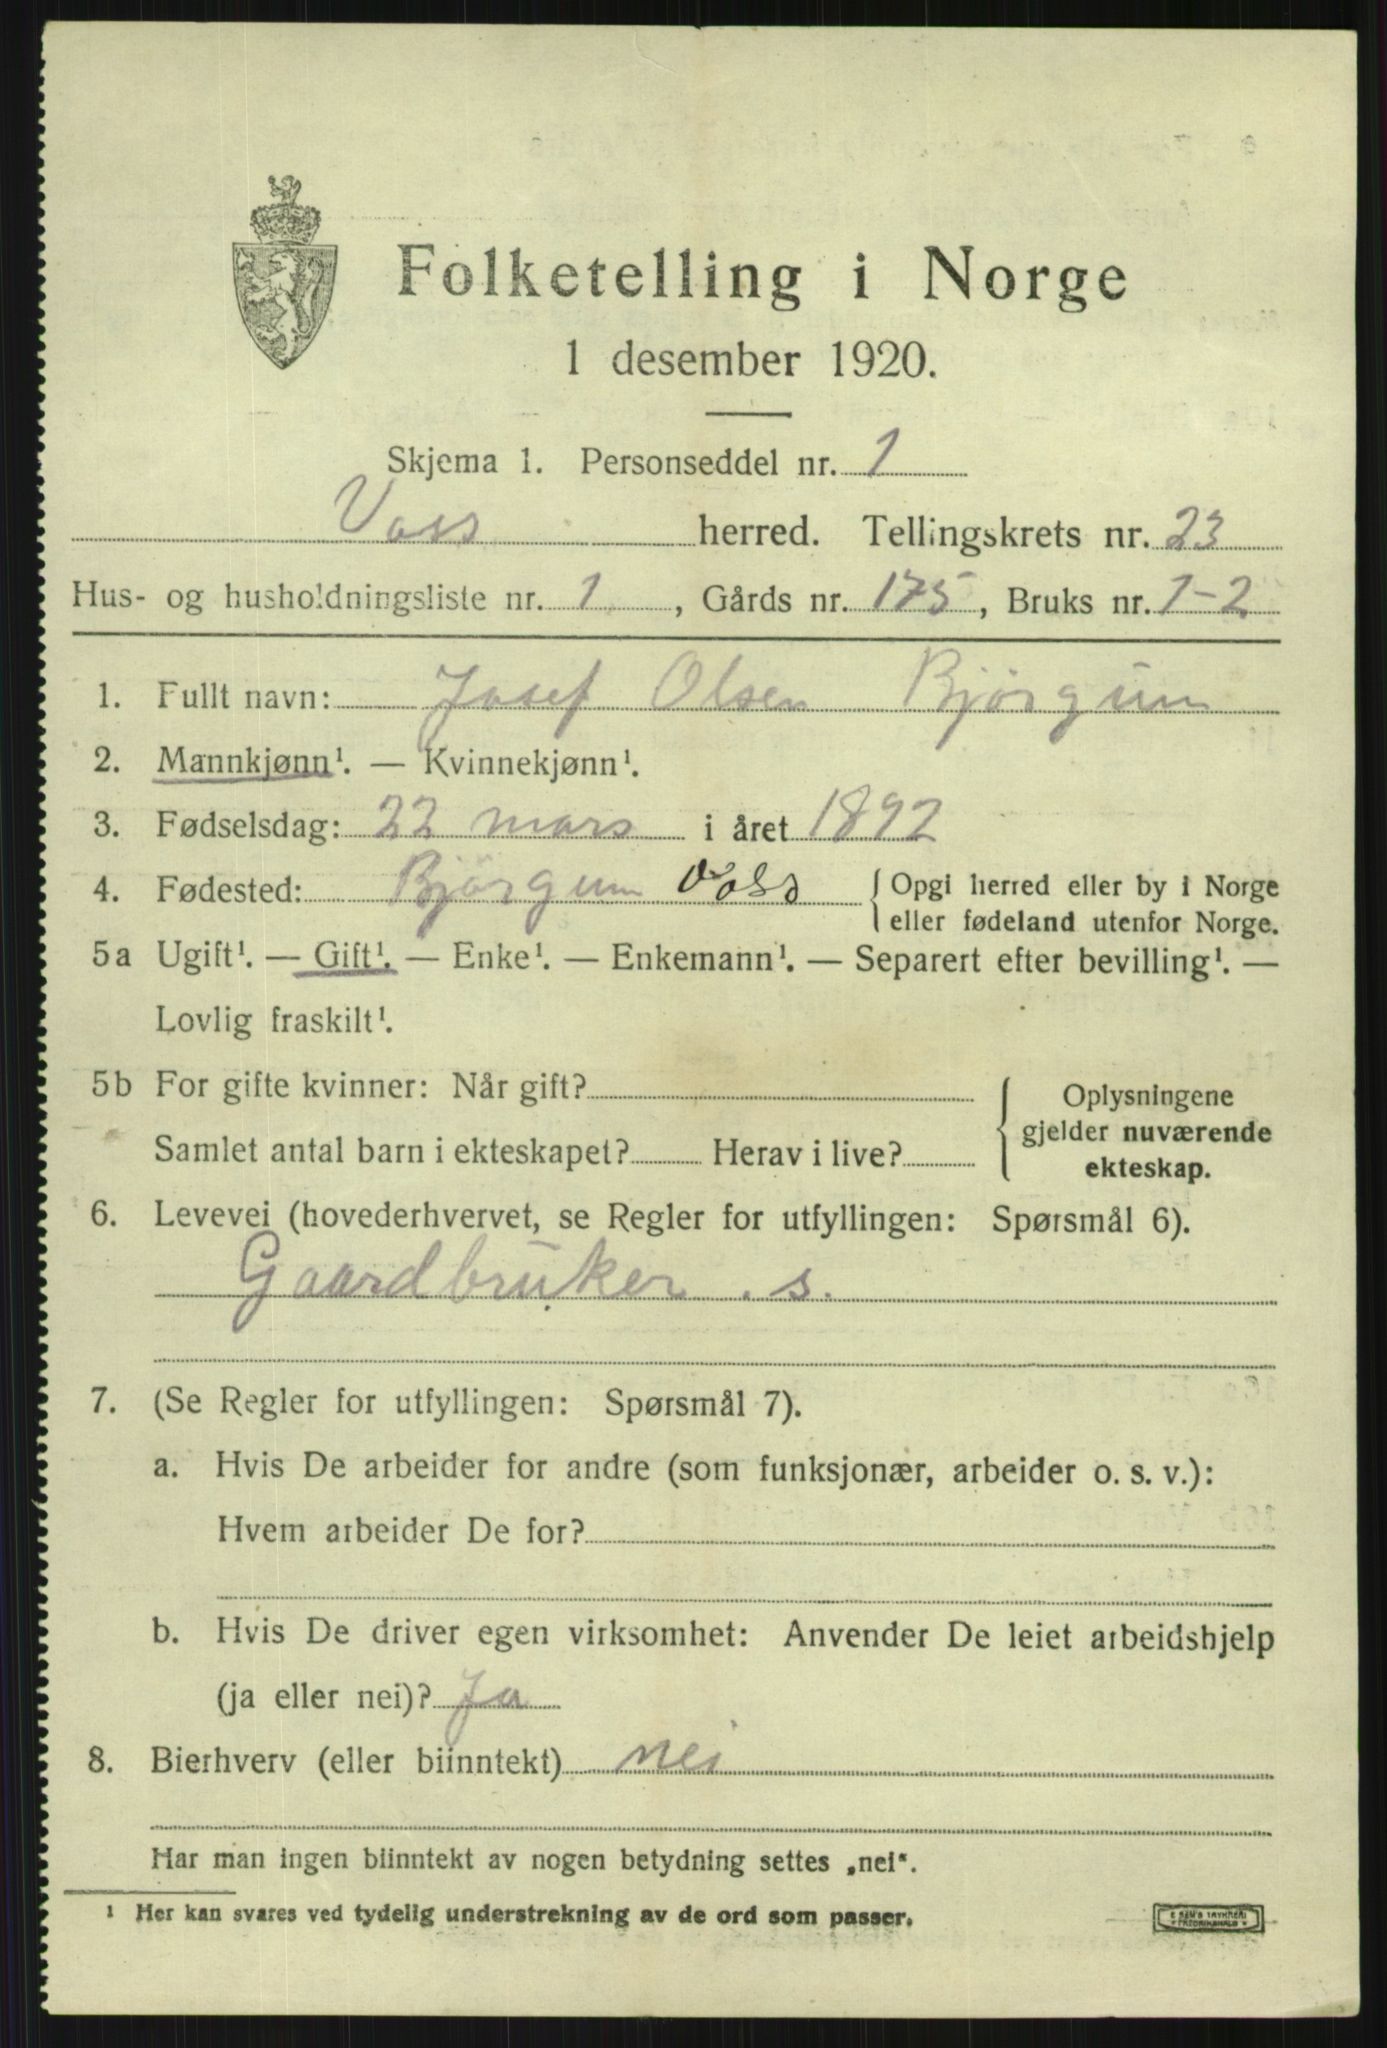 Folketelling i Norge
1 desember 1920.
Skjema 1. Personseddel nr. 1
Voss herred. Tellingskrets nr. 23
Hus- og husholdningsliste nr. 1, Gårds nr. 175, Bruks nr. 1-2
1. Fullt navn: Josef Olsen Bjørgum
2. Mannkjønn¹. — Kvinnekjønn¹.
3. Fødselsdag: 22 mars i året 1892
4. Fødested: Bjørgum Voss { Opgi herred eller by i Norge
eller fødeland utenfor Norge.
5a Ugift¹. — Gift¹. — Enke¹. — Enkemann¹. — Separert efter bevilling¹. —
Lovlig fraskilt¹.
5b For gifte kvinner: Når gift?
Samlet antal barn i ekteskapet? Herav i live?
Oplysningene
gjelder nuværende
ekteskap.
6. Levevei (hovederhvervet, se Regler for utfyllingen: Spørsmål 6).
Gaardbruker . s.
7. (Se Regler for utfyllingen: Spørsmål 7).
a. Hvis De arbeider for andre (som funksjonær, arbeider o. s. v.):
Hvem arbeider De for?
b. Hvis De driver egen virksomhet: Anvender De leiet arbeidshjelp
(ja eller nei)? Ja
8. Bierhverv (eller biinntekt) nei
Har man ingen biinntekt av nogen betydning settes „nei“.
¹ Her kan svares ved tydelig understrekning av de ord som passer.